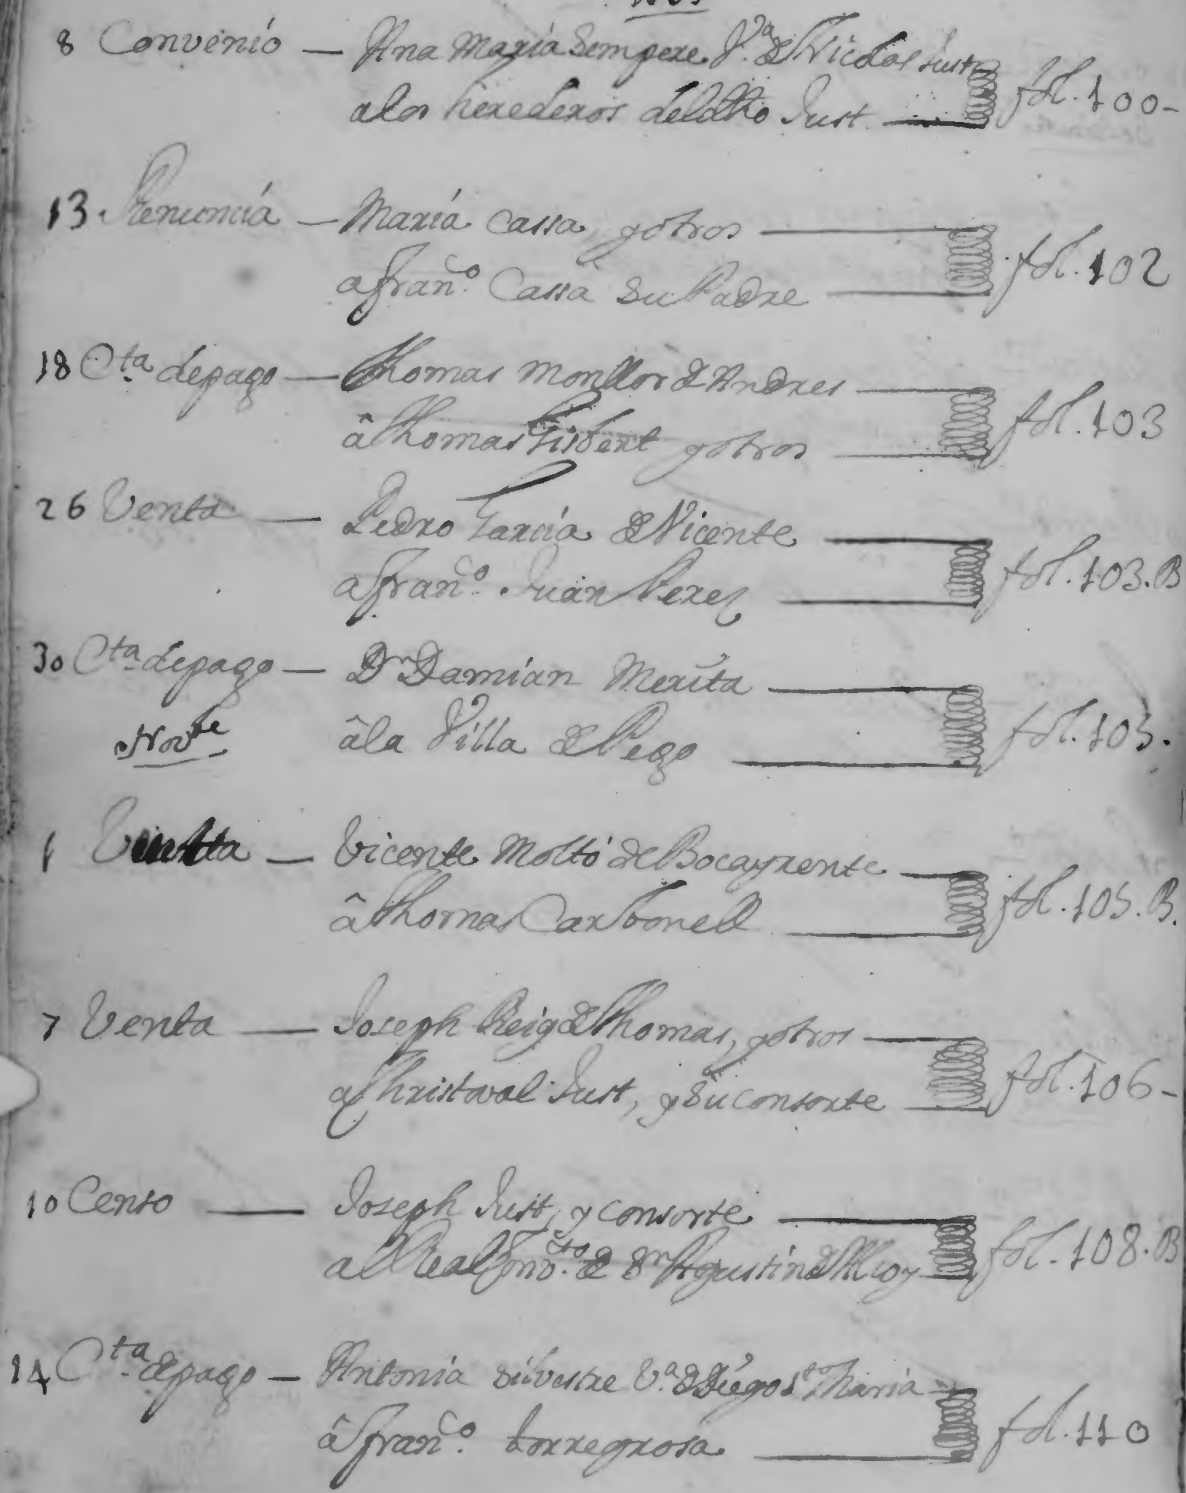 8 Convenio — Ana Maria Sempere V.ª de Nicolas Just
a los herederos del dho Just — fol. 100-
13. Renuncia — Maria Cassa, y otros —
a Fran.co Cassa su Padre — fol. 102
18 C.ta de pago — Thomas Monllor de Andres —
â Thomas Gisbert y otros — fol. 103
26 Venta — Pedro Garcia de Vicente —
a Fran.co Juan Perez — fol. 103.B
30 C.ta de pago — Dr Damian Merita —
â la Villa de Pego — fol. 105.
Nov.re
1 Venta — Vicente Molto de Bocayrente —
â Thomas Carbonell — fol. 105.B.
7 Venta — Joseph Reig de Thomas, y otros —
a Christoval Just, y su consorte — fol. 106-
10 Censo — Joseph Just, y consorte —
al Real Conv.to de Sn Agustin de Alcoy — fol. 108.B
14 C.ta de pago — Antonia Silvestre V.ª de Diego S.ta Maria —
â Fran.co torregrosa — fol. 110